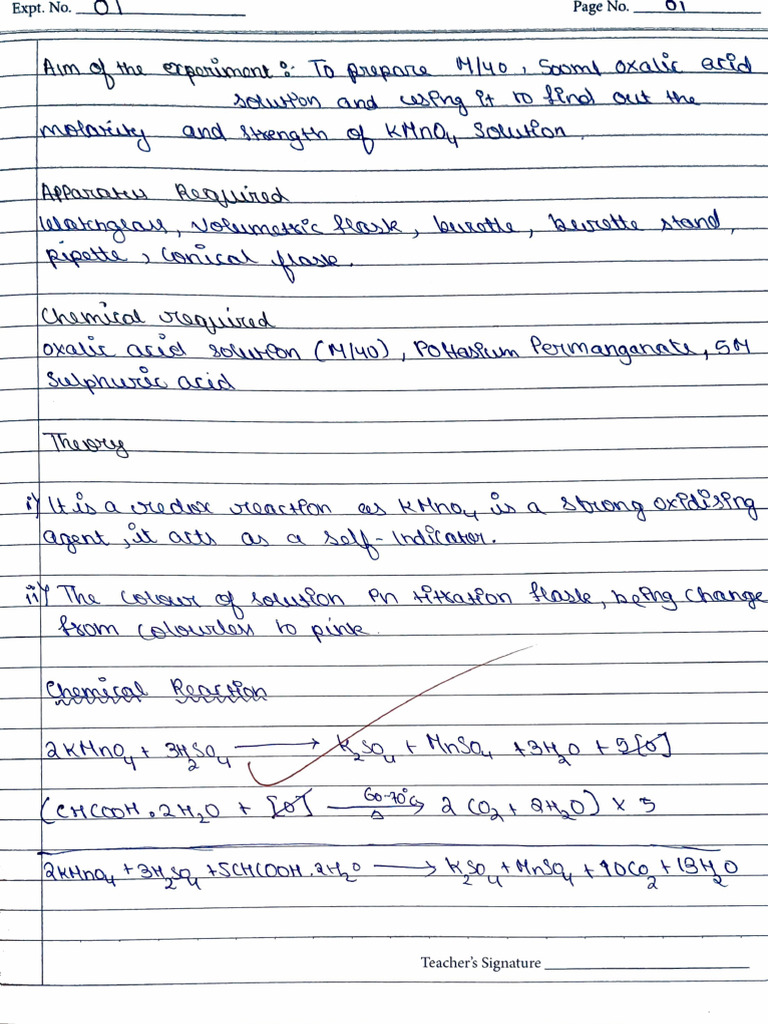 Expt. No. 01
Page No. 01
Aim of the experiment : To prepare M/40, 500ml oxalic acid
solution and using it to find out the
molarity and strength of KMnO₄ solution.
Apparatus Required
Watchglass, volumetric flask, burette, burette stand,
pipette, conical flask.
Chemical required
Oxalic acid solution (M/40), Pottasium Permanganate, 5M
Sulphuric acid
Theory
i) It is a redox reaction as KMnO₄ is a strong oxidising
agent, it acts as a self-Indicator.
ii) The colour of solution in titration flask, being change
from colourless to pink.
Chemical Reaction
2KMnO₄ + 3H₂SO₄ ⟶ K₂SO₄ + MnSO₄ + 3H₂O + 5[O]
(CHCOOH.2H₂O + [O] 60-70°C ⟶ Δ 2CO₂ + 2H₂O) × 5
2KMnO₄ + 3H₂SO₄ + 5CHCOOH.2H₂O ⟶ K₂SO₄ + MnSO₄ + 10CO₂ + 13H₂O
Teacher's Signature